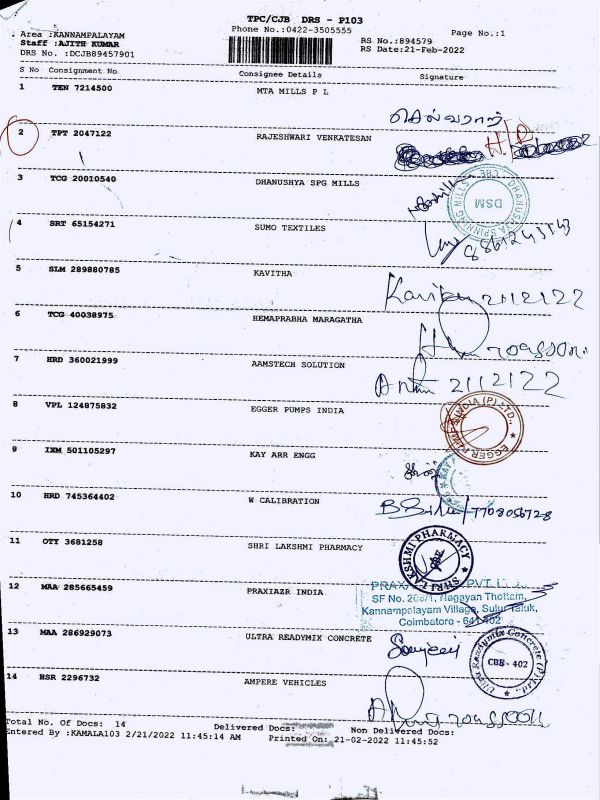 TPC/CJB DRS - P103
Area :KANNAMPALAYAM Phone No.:0422-3505555 Page No.:1
Staff :AJITH KUMAR RS No.:894579
DRS No. :DCJB89457901 RS Date:21-Feb-2022
S No Consignment No Consignee Details Signature
1 TEN 7214500 MTA MILLS P L
செல்வராஜ்
2 TPT 2047122 RAJESHWARI VENKATESAN
3 TCG 20010540 DHANUSHYA SPG MILLS
DSM
4 SRT 65154271 SUMO TEXTILES
5 SLM 289880785 KAVITHA
21/2/22
6 TCG 40038975 HEMAPRABHA MARAGATHA
7 HRD 360021999 AAMSTECH SOLUTION
21/2/22
8 VPL 124875832 EGGER PUMPS INDIA
EGGER PUMPS INDIA (P) LTD.,
9 IXM 501105297 KAY ARR ENGG
10 HRD 745364402 W CALIBRATION
11 OTT 3681258 SHRI LAKSHMI PHARMACY
SHRI LAKSHMI PHARMACY
12 MAA 285665459 PRAXIAZR INDIA
PVT.
Nagayan Thottam,
Kannampalayam Village, Sulur Taluk,
Coimbatore - 641 402
13 MAA 286929073 ULTRA READYMIX CONCRETE
Ultra Readymix Concrete (P) Ltd.,
CBE - 402
14 HSR 2296732 AMPERE VEHICLES
Total No. Of Docs: 14 Delivered Docs: Non Delivered Docs:
Entered By :KAMALA103 2/21/2022 11:45:14 AM Printed On: 21-02-2022 11:45:52